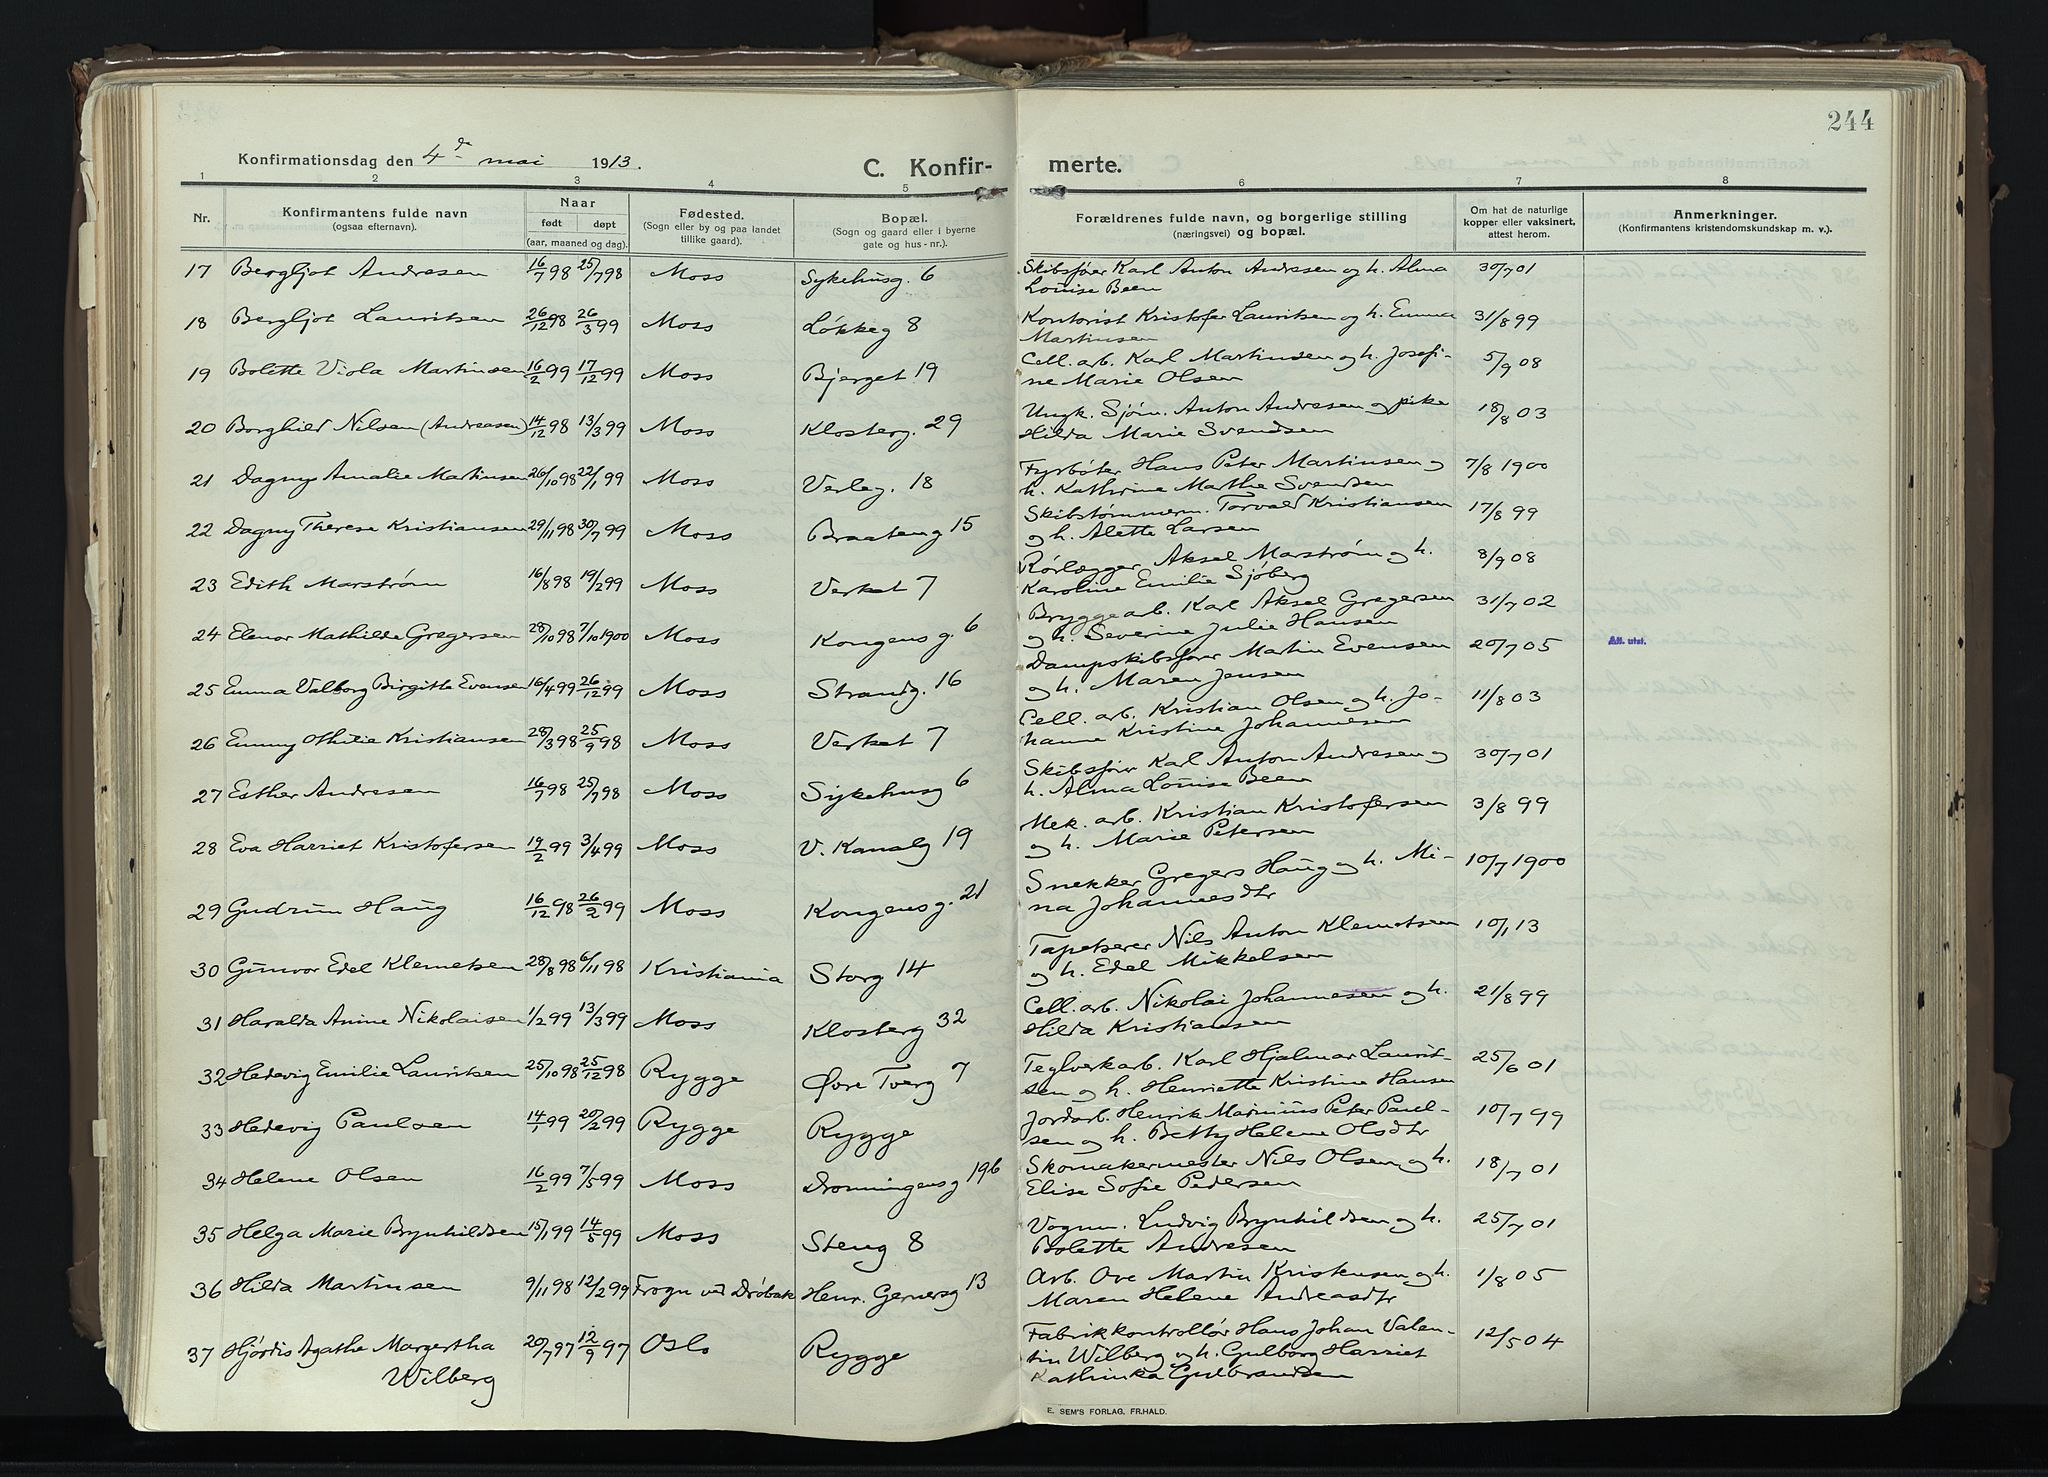 244
Konfirmationsdag den 4de mai 1913.
C. Konfir-
merte.
1 2 3 4 5 6 7 8
Nr. Konfirmantens fulde navn (ogsaa efternavn). Naar født døpt (aar, maaned og dag). Fødested. (Sogn eller by og paa landet tillike gaard). Bopæl. (Sogn og gaard eller i byerne gate og hus-nr.). Forældrenes fulde navn, og borgerlige stilling (næringsvei) og bopæl. Om hat de naturlige kopper eller vaksinert, attest herom. Anmerkninger. (Konfirmantens kristendomskundskap m. v.).
17 Bergljot Andresen 16/7 98 25/7 98 Moss Sykehusg. 6 Skibsfører Karl Anton Andresen og h. Alma
Louise Been 30/7 01
18 Bergljot Lauritsen 26/12 98 26/3 99 Moss Løkkeg 8 Kontorist Kristofer Lauritsen og h. Emma
Martinsen 31/8 99
19 Bolette Viola Martinsen 16/2 99 17/12 99 Moss Bjerget 19 Cell. arb. Karl Martinsen og h. Josefi-
ne Marie Olsen 5/9 08
20 Borghild Nilsen (Andreasen) 14/12 98 13/3 99 Moss Klosterg. 29 Ungk. Sjøm. Anton Andresen og pike
Hilda Marie Svendsen 18/8 03
21 Dagny Amalie Martinsen 26/10 98 22/1 99 Moss Verleg. 18 Fyrbøter Hans Peter Martinsen og
h. Kathrine Marthe Svendsen 7/8 1900
22 Dagny Therese Kristiansen 29/11 98 30/7 99 Moss Braateng 15 Skibstømmerm. Torvald Kristiansen
og h. Alette Larsen 17/8 99
23 Edith Marstrøm 16/8 98 19/2 99 Moss Verket 7 Rørlægger Aksel Marstrøm og h.
Karoline Emilie Sjøberg 8/9 08
24 Elenor Mathilde Gregersen 28/10 98 7/10 1900 Moss Kongensg. 6 Bryggearb. Karl Aksel Gregersen
og h. Severine Julie Hansen 31/7 02
25 Emma Valborg Birgitte Evensen 16/4 99 26/12 99 Moss Strandg. 16 Dampskibsfører Martin Evensen
og h. Maren Jensen 20/7 05 Att. utst.
26 Emmy Othilie Kristiansen 28/3 98 25/9 98 Moss Verket 7 Cell. arb. Kristian Olsen og h. Jo-
hanne Kristine Johannesen 11/8 03
27 Esther Andresen 16/7 98 25/7 98 Moss Sykehusg 6 Skibsfører Karl Anton Andresen og
h. Alma Louise Been 30/7 01
28 Eva Harriet Kristofersen 19/2 99 3/4 99 Moss V. Kanalg 19 Mek. arb. Kristian Kristofersen
og h. Marie Petersen 3/8 99
29 Gudrun Haug 16/12 98 26/2 99 Moss Kongensg. 21 Snekker Gregers Haug og h. Mi-
na Johannesdtr 10/7 1900
30 Gunvor Edel Klemetsen 28/8 98 6/11 98 Kristiania Storg 14 Tapetserer Nils Anton Klemetsen
og h. Edel Mikkelsen 10/1 13
31 Haralda Anine Nikolaisen 1/2 99 13/3 99 Moss Klosterg 32 Cell. arb. Nikolai Johannesen og h.
Hilda Kristiansen 21/8 99
32 Hedevig Emilie Lauritsen 25/10 98 25/12 98 Rygge Øvre Tverg 7 Teglverkarb. Karl Hjalmar Laurit-
sen og h. Henriette Kristine Hansen 25/6 01
33 Hedevig Paulsen 14/1 99 20/2 99 Rygge Rygge Jordarb. Henrik Marinius Peter Paul-
sen og h. Betty Helene Olsdtr 10/7 99
34 Helene Olsen 16/2 99 7/5 99 Moss Dronningensg 196 Skomakermester Nils Olsen og h.
Elise Sofie Pedersen 18/7 01
35 Helga Marie Brynhildsen 15/1 99 14/5 99 Moss Steng 8 Vognm. Ludvig Brynhildsen og h.
Bolette Andresen 25/7 01
36 Hilda Martinsen 9/11 98 12/2 99 Frogn ved Drøbak Henr. Gernersg 13 Arb. Ove Martin Kristensen og h.
Maren Helene Andreasdtr 1/8 05
37 Hjørdis Agathe Margertha
Wilberg 20/7 97 12/9 97 Oslo Rygge Fabrikkontrollør Hans Johan Valen-
tin Wilberg og h. Gulborg Harriet
Kathinka Gulbrandsen 12/5 04
E. SEM'S FORLAG, FR.HALD.